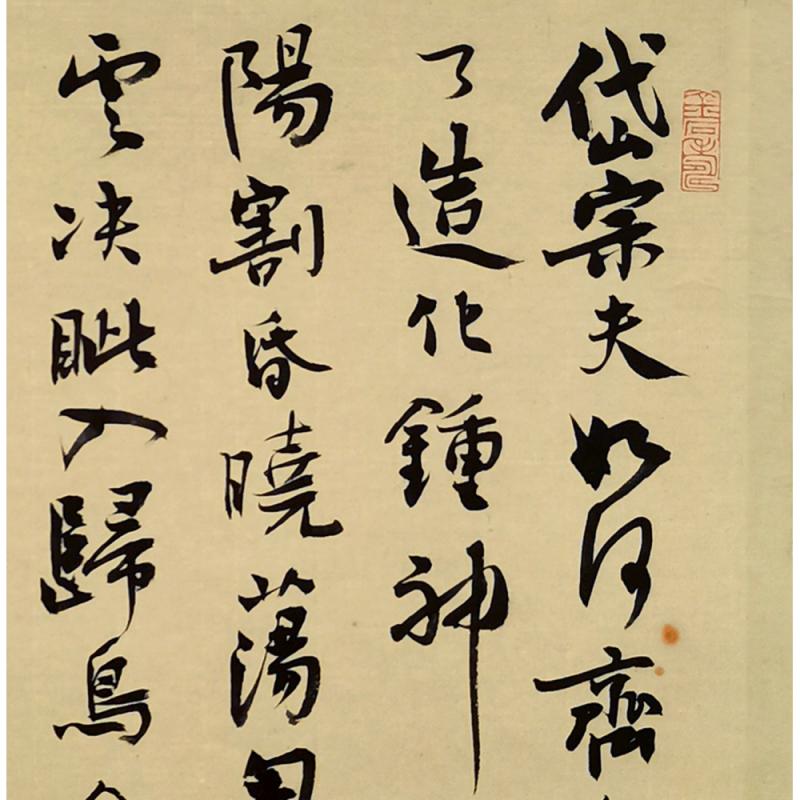 岱宗夫如何齊
了造化鍾神
陽割昏曉蕩
雲决眦入歸鳥